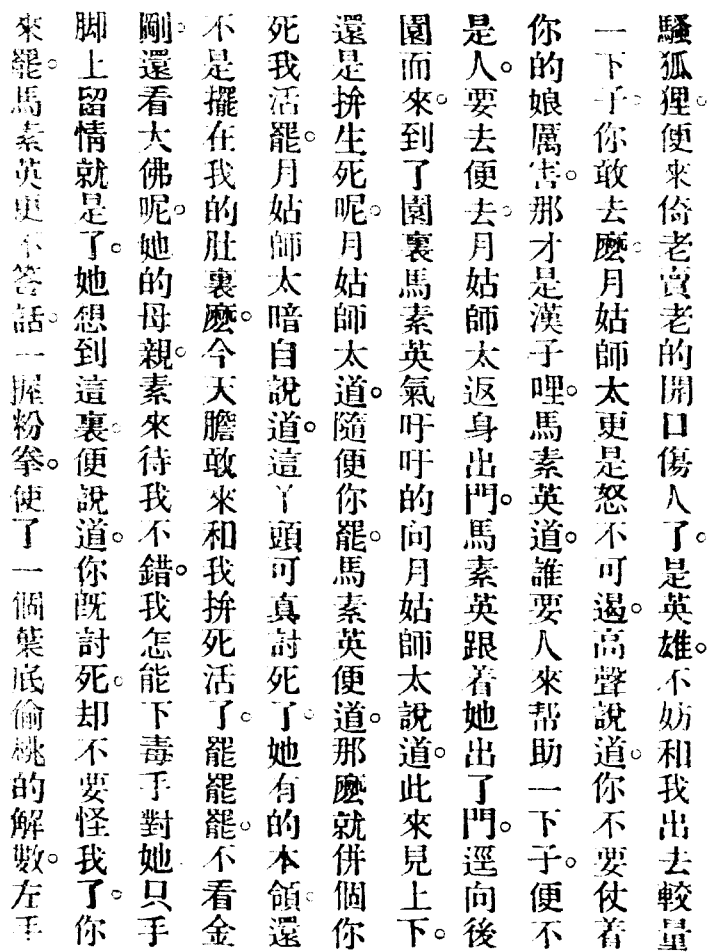 騷狐狸。便來倚老賣老的開口傷人了。是英雄。不妨和我出去較量
一下子。你敢去麽。月姑師太更是怒不可遏。高聲說道。你不要仗着
你的娘厲害。那才是漢子哩。馬素英道。誰要人來幫助一下子。便不
是人。要去便去。月姑師太返身出門。馬素英跟着她出了門。逕向後
園而來。到了園裏馬素英氣吁吁的向月姑師太說道。此來見上下。
還是拚生死呢。月姑師太道。隨便你罷。馬素英便道。那麽就併個你
死我活罷。月姑師太暗自說道。這丫頭可真討死了。她有的本領。還
不是擺在我的肚裏麽。今天膽敢來和我拚死活了。罷罷罷。不看金
剛。還看大佛呢。她的母親。素來待我不錯。我怎能下毒手對她。只手
脚上留情就是了。她想到這裏。便說道。你旣討死。却不要怪我了。你
來罷。馬素英更不答話。一握粉拳。使了一個葉底偷桃的解數。左手